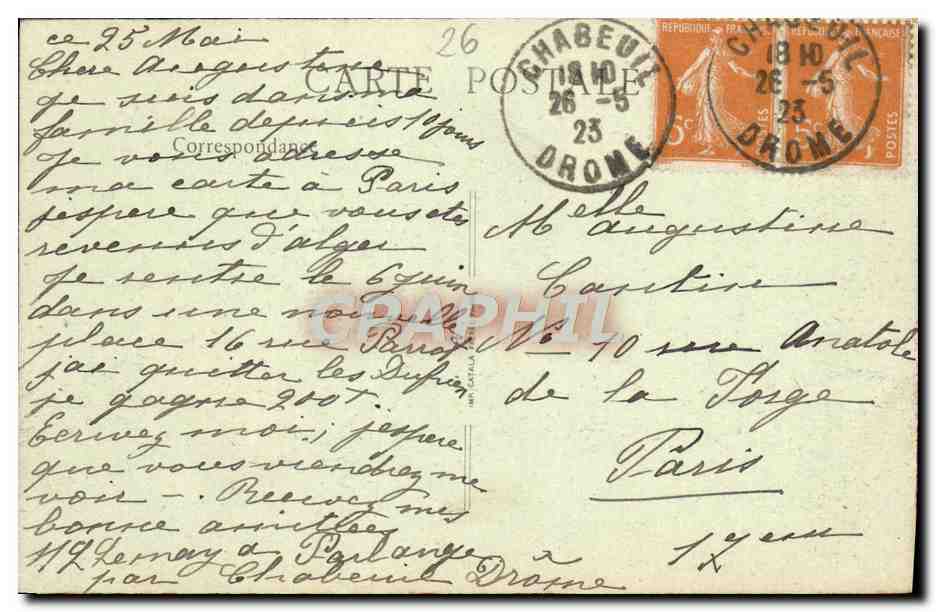 26
CARTE POSTALE
Correspondance
ce 25 Mai
Chere Augustine
je suis dans ma
famille depuis 10 jours
Je vous adresse
ma carte à Paris
jespere que vous etes
revenus d'alger
je rentre le 6 juin
dans une nouvelle
place 16 rue
jai quitter les
je gagne 200f.
Ecrivez moi, jespere
que vous viendrez me
voir -. Recevez mes
bonne amitiées
à Parlange
par Chabeuil Drôme
CHABEUIL
18 10
26 -5
23
DROME
CHABEUIL
18 10
26 -5
23
DROME
REPUBLIQUE FRANÇAISE
REPUBLIQUE FRANÇAISE
5c
POSTES
5c
POSTES
Melle augustine
Cantin
No 10 rue Anatole
de la Forge
Paris
17 eme
IMP. CATALA
CPAPHIL